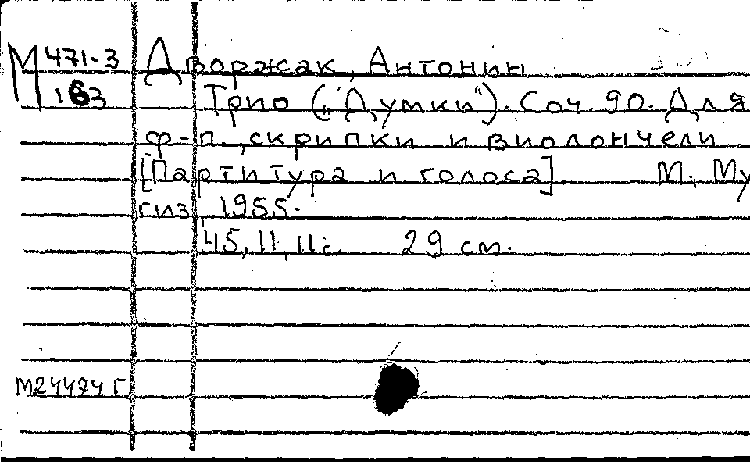 М 471-3 Дворжак, Антонин
163 Трио („Думки"). Соч. 90. Для
ф-п., скрипки и виолончели
[Партитура и голоса] М. Му
гиз 1955.
45, 11, 11 с. 29 см.
М24424 Г